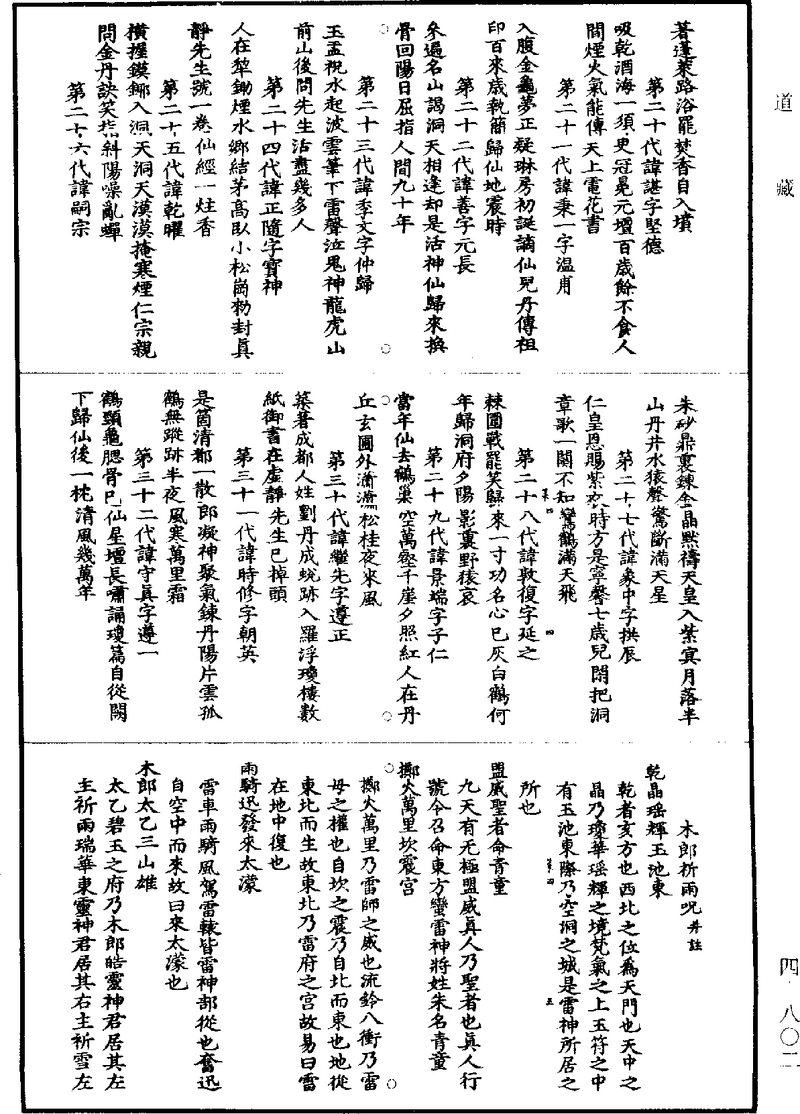 道藏
著蓬萊路浴罷焚香自入墳
第二十代諱諶字堅德
吸乾酒海一須臾冠冕元壇百歲餘不食人
間煙火氣能傳天上電花書
第二十一代諱秉一字温甫
入腹金龜夢正疑琳房初誕謫仙兒丹傳祖
印百來歲執簡歸仙地震時
第二十二代諱善字元長
叅遍名山謁洞天相逢却是活神仙歸來換
骨回陽日屈指人間九十年
第二十三代諱季文字仲歸
玉盂祝水起波雲筆下雷聲泣鬼神龍虎山
前山後問先生活盡幾多人
第二十四代諱正隨字寶神
人在犂鋤煙水鄉結茅高臥小松崗勑封真
靜先生號一卷仙經一炷香
第二十五代諱乾曜
橫握鏌鎁入洞天洞天漠漠掩寒煙仁宗親
問金丹訣笑指斜陽噪亂蟬
第二十六代諱嗣宗
朱砂鼎裏鍊金晶默禱天皇入紫㝠月落半
山丹井水猿聲驚斷滿天星
第二十七代諱象中字拱辰
仁皇恩賜紫衣時方是寧馨七歲兒閒把洞
章歌一闋不知鸞鶴滿天飛
第二十八代諱敦復字延之
棘圍戰罷笑歸來一寸功名心已灰白鶴何
年歸洞府夕陽影裏野猿哀
第二十九代諱景端字子仁
當年仙去鶴巢空萬壑千崖夕照紅人在丹
丘玄圃外瀟瀟松桂夜來風
第三十代諱繼先字遵正
藥著成都人姓劉丹成蛻跡入羅浮瓊樓數
紙御書在虛靜先生已掉頭
第三十一代諱時修字朝英
是箇清都一散郎凝神聚氣鍊丹陽片雲孤
鶴無蹤跡半夜風寒萬里霜
第三十二代諱守真字遵一
鶴頸龜腮骨已仙星壇長嘯誦瓊篇自從闕
下歸仙後一枕清風幾萬年
木郎祈雨呪并註
乾晶瑶輝玉池東
乾者亥方也西北之位為天門也天中之
晶乃瓊華瑶輝之境梵氣之上玉符之中
有玉池東際乃空洞之城是雷神所居之
所也
盟威聖者命青童
九天有无極盟威真人乃聖者也真人行
號令召命東方蠻雷神將姓朱名青童
擲火萬里坎震宮
擲火萬里乃雷師之威也流鈴八衝乃雷
母之權也自坎之震乃自北而東也地從
東北而生故東北乃雷府之宮故易曰雷
在地中復也
雨騎迅發來太濛
雷車雨騎風駕雷轅皆雷神部從也奮迅
自空中而來故曰來太濛也
木郎太乙三山雄
太乙碧玉之府乃木郎皓靈神君居其左
主祈雨瑞華東靈神君居其右主祈雪左
四·八〇二